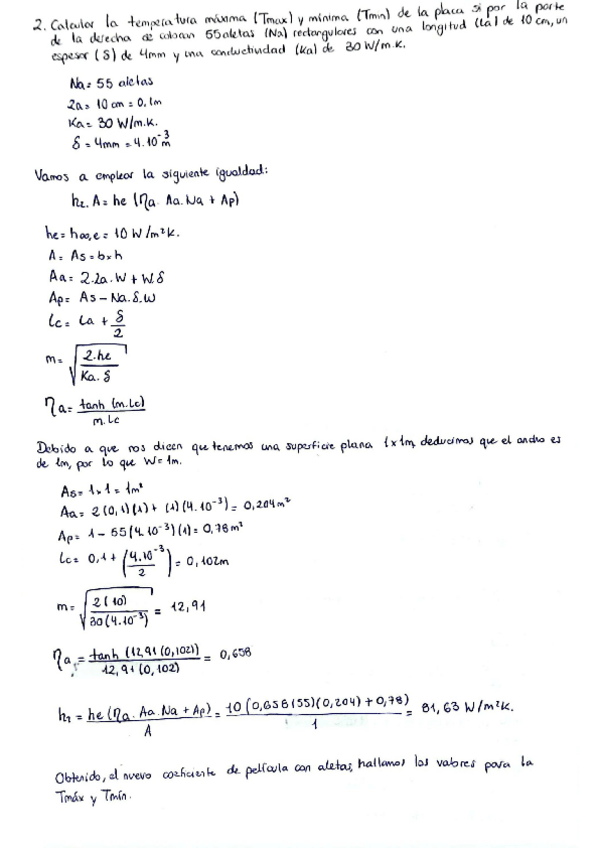 2. Calcular la temperatura máxima (Tmax) y mínima (Tmin) de la placa si por la parte
de la derecha se colocan 55 aletas (Na) rectangulares con una longitud (La) de 10 cm, un
espesor (δ) de 4mm y una conductividad (Ka) de 30 W/m.K.
Na = 55 aletas
La = 10 cm = 0,1m
Ka = 30 W/m.K.
δ = 4mm = 4.10⁻³ m
Vamos a emplear la siguiente igualdad:
h₂. A = he (ηa. Aa. Na + Ap)
he = h∞,e = 10 W/m²K.
A = As = b×h
Aa = 2.La.W + W.δ
Ap = As - Na.δ.W
Lc = La + δ/2
m = √(2.he / Ka.δ)
ηa = tanh (m.Lc) / m.Lc
Debido a que nos dicen que tenemos una superficie plana 1x1m, deducimos que el ancho es
de 1m, por lo que W = 1m.
As = 1×1 = 1m²
Aa = 2(0,1)(1) + (1)(4.10⁻³) = 0,204m²
Ap = 1 - 55(4.10⁻³)(1) = 0,78m²
Lc = 0,1 + (4.10⁻³/2) = 0,102m
m = √(2(10) / 30(4.10⁻³)) = 12,91
ηa = tanh (12,91(0,102)) / 12,91(0,102) = 0,658
h₂ = he(ηa. Aa. Na + Ap) / A = 10(0,658(55)(0,204) + 0,78) / 1 = 81,63 W/m²K.
Obtenido, el nuevo coeficiente de película con aletas, hallamos los valores para la
Tmáx y Tmín.